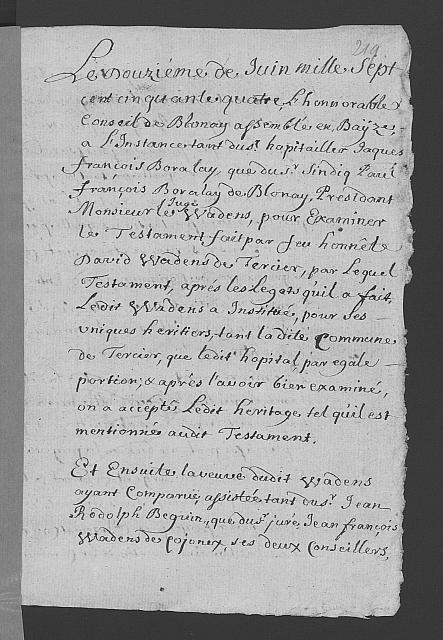 219
Le Douziéme de Juin mille Sept
cent cinquante quatre, L'honnorable
Conseil de Blonay assemblé en Bayze,
a L'Instance tant du sr. hopitailler Jaques
françois Boralay, que du sr. Sindiq Paul
françois Boralay de Blonay, Présidant
Monsieur le Juge Wadens, pour Examiner
le Testament fait par feu honnek
David Wadens de Tercier, par Lequel
Testament, aprés les legats qu'il a fait,
Ledit Wadens a Institué, pour Ses
uniques heritiers, tant la dite Commune
de Tercier, que ledit hopital, par egale
portion; & aprés l'avoir bien examiné,
on a accepté Ledit heritage tel qu'il est
mentionné audit Testament.
Et Ensuite la veuve dudit Wadens
ayant Comparue, assistée tant du sr. Jean
Rodolph Beguin, que du sr. juré, Jean françois
Wadens de Cojonex ses deux Conseillers,